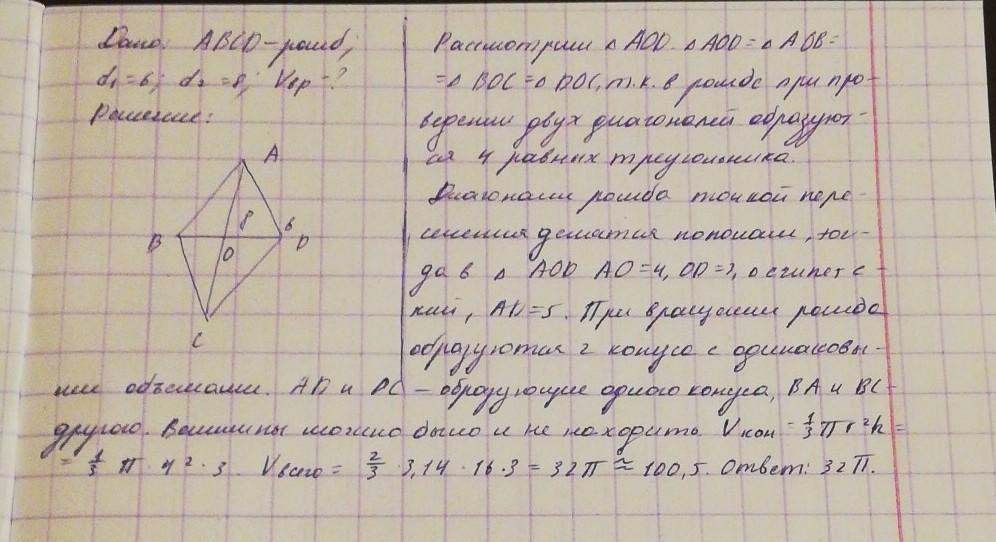 Дано: ABCD – ромб;
d₁ = 6; d₂ = 8; Vвр – ?
Решение:
A
8
6
B
D
O
C
Рассмотрим △ AOD. △ AOD = △ AOB =
= △ BOC = △ DOC, т.к. в ромбе при про-
ведении двух диагоналей образуют-
ся 4 равных треугольника.
Диагонали ромба точкой пере-
сечения делятся пополам, тог-
да в △ AOD AO = 4, OD = 3, △ египетс-
кий, AD = 5. При вращении ромба
образуются 2 конуса с одинаковы-
ми объемами. AD и DC – образующие одного конуса, BA и BC –
другого. можно было и не находить. Vкон = 1/3 π r² h =
= 1/3 π · 4² · 3. Vвсего = 2/3 · 3,14 · 16 · 3 = 32π ≈ 100,5. Ответ: 32π.